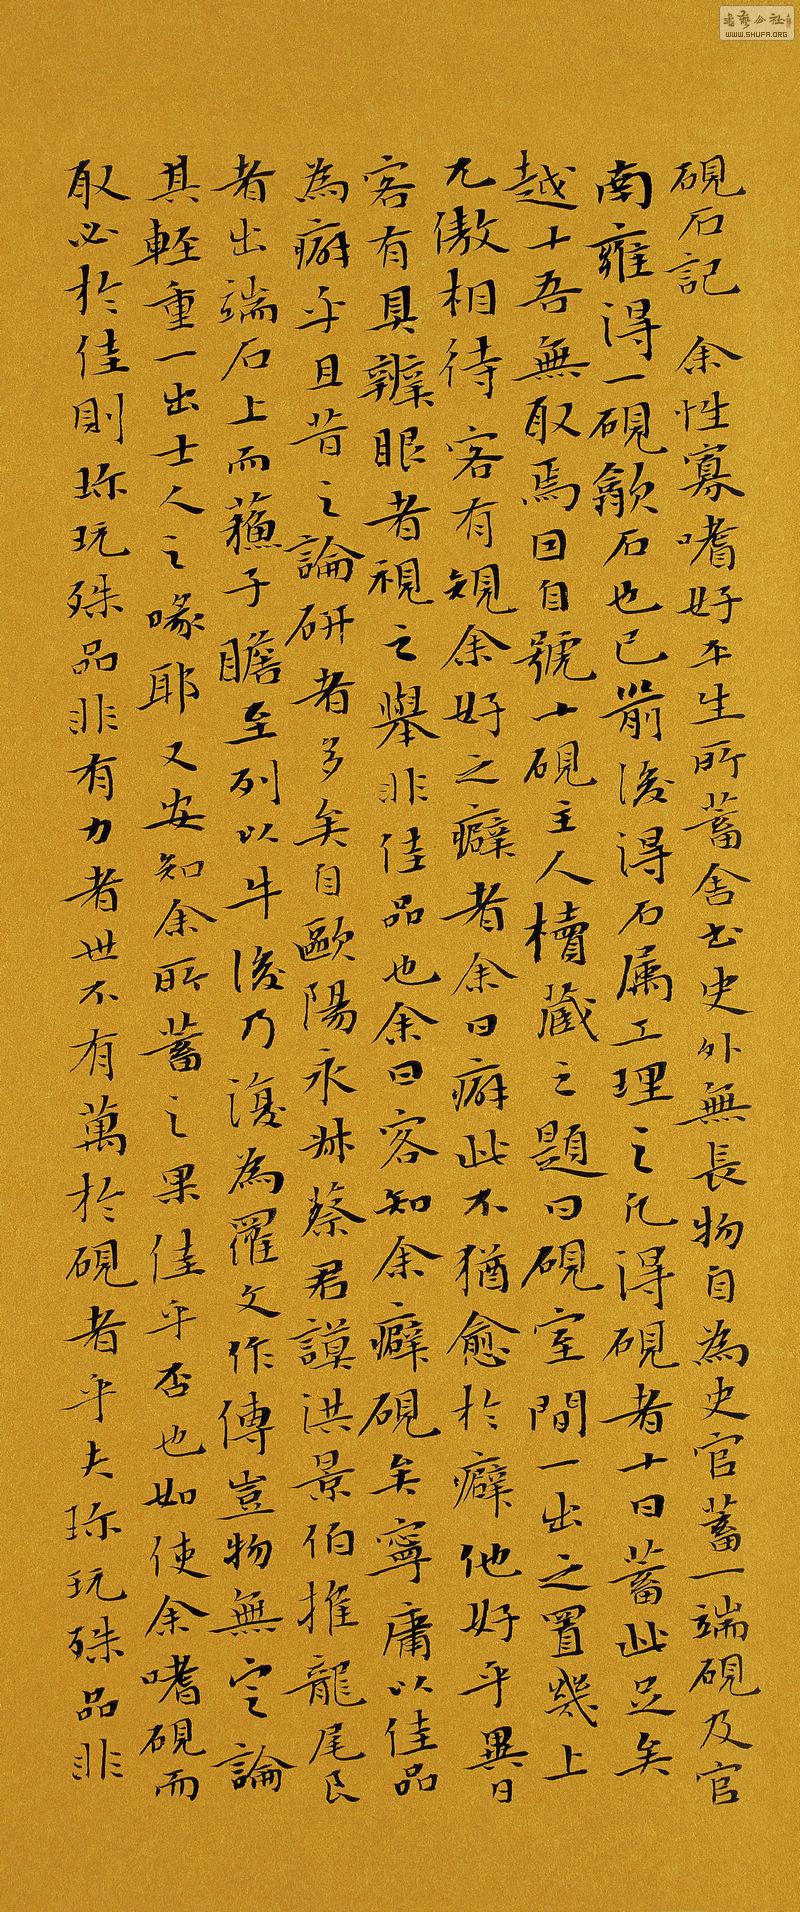 硯石記 余性寡嗜好平生所蓄舍书史外無長物自為史官蓄一端硯及官
南雍得一硯歙石也已前後得石属工理之凡得硯者十曰蓄此足矣
越十吾無取焉因自號十硯主人櫝藏之題曰硯室間一出之置几上
兀傲相待客有規余好之癖者余曰癖此不猶愈於癖他好乎異日
客有具辨眼者視之舉非佳品也余曰客知余癖硯矣寧庸以佳品
為癖乎且昔之論研者多矣自歐陽永叔蔡君謨洪景伯推龍尾良
者出端石上而蘓子瞻至列以牛後乃復為羅文作傳豈物無定論
其輕重一出士人之喙耶又安知余所蓄之果佳乎否也如使余嗜硯而
取必於佳則珎玩殊品非有力者世不有萬於硯者乎夫珎玩殊品非
書藝公社
www.SHUFA.ORG